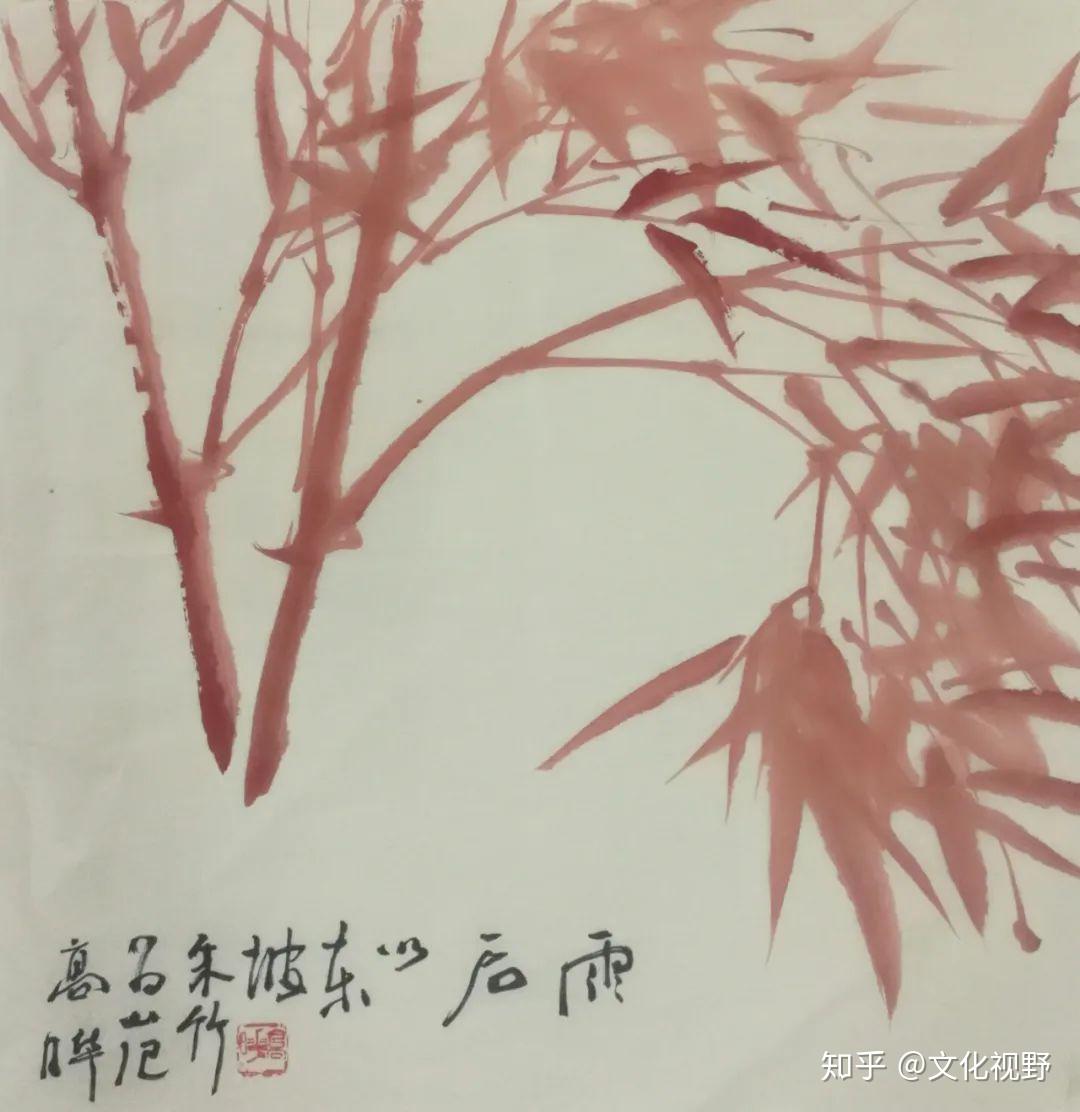 雨后
以东坡朱竹为范
高晔
知乎 @文化视野